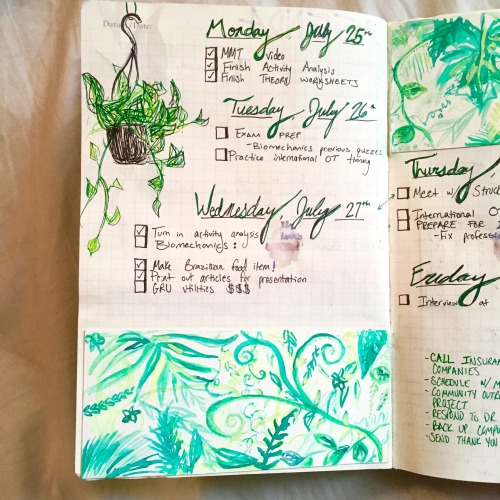 Date:
Monday July 25th
MMT video
Finish Activity Analysis
Finish THEORY WORKSHEETS
Tuesday, July 26th
EXAM PREP
-Biomechanics previous quizzes
Practice international OT
Wednesday, July 27th
Turn in activity analysis
Biomechanics:
Make Brazilian food item!
Print out articles for presentation
GRU utilities $$$
Thursday,
Meet w/ Struc
International OT
PREPARE FOR I
-Fix profess
Friday
Interview at
-CALL INSURAN
COMPANIES
-SCHEDULE W/ M
-COMMUNITY OUTR
PROJECT
-RESPOND TO DR
-BACK UP COMPU
-SEND THANK YOU